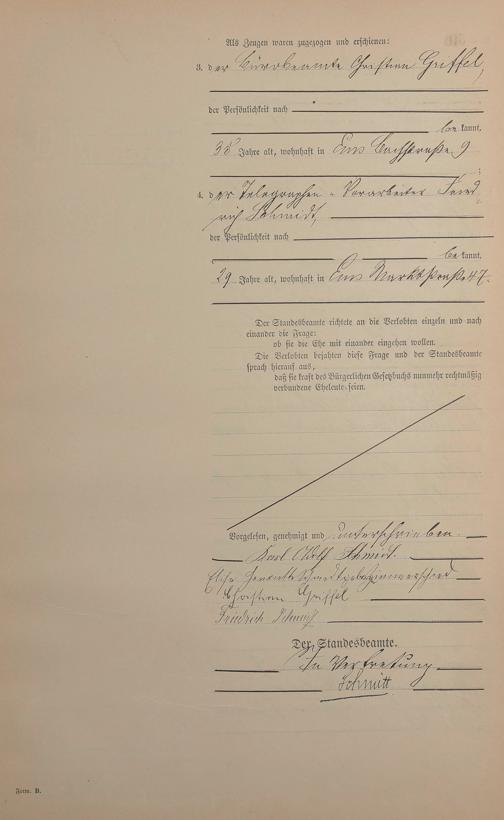 Als Zeugen waren zugezogen und erschienen:
3. der Bürobeamte Christian Griffel,
der Persönlichkeit nach
be kannt,
38 Jahre alt, wohnhaft in Ems Bachstraße 9
;
4. der Telegraphen-Vorarbeiter Fried
rich Schmidt,
der Persönlichkeit nach
be kannt,
29 Jahre alt, wohnhaft in Ems Marktstraße 47.
Der Standesbeamte richtete an die Verlobten einzeln und nach
einander die Frage:
ob sie die Ehe mit einander eingehen wollen.
Die Verlobten bejahten diese Frage und der Standesbeamte
sprach hierauf aus,
daß sie kraft des Bürgerlichen Gesetzbuchs nunmehr rechtmäßig
verbundene Eheleute seien.
Vorgelesen, genehmigt und unterschrieben
Karl Adolf Schmidt.
Schmidt geb.
Christian Griffel
Friedrich Schmidt
Der Standesbeamte.
In Vertretung
Schmitt
Form. B.